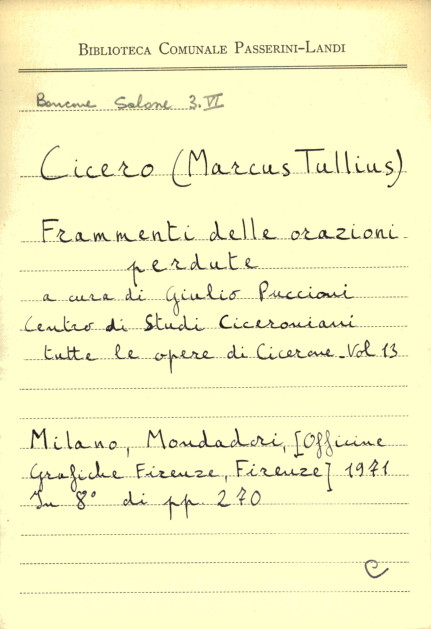 BIBLIOTECA COMUNALE PASSERINI-LANDI
Bancone Salone 3.VI
Cicero (Marcus Tullius)
Frammenti delle orazioni
perdute
a cura di Giulio Puccioni
Centro di Studi Ciceroniani
tutte le opere di Cicerone_Vol 13
Milano, Mondadori, [Officine
Grafiche Firenze, Firenze] 1971
In 8° di pp. 270
C